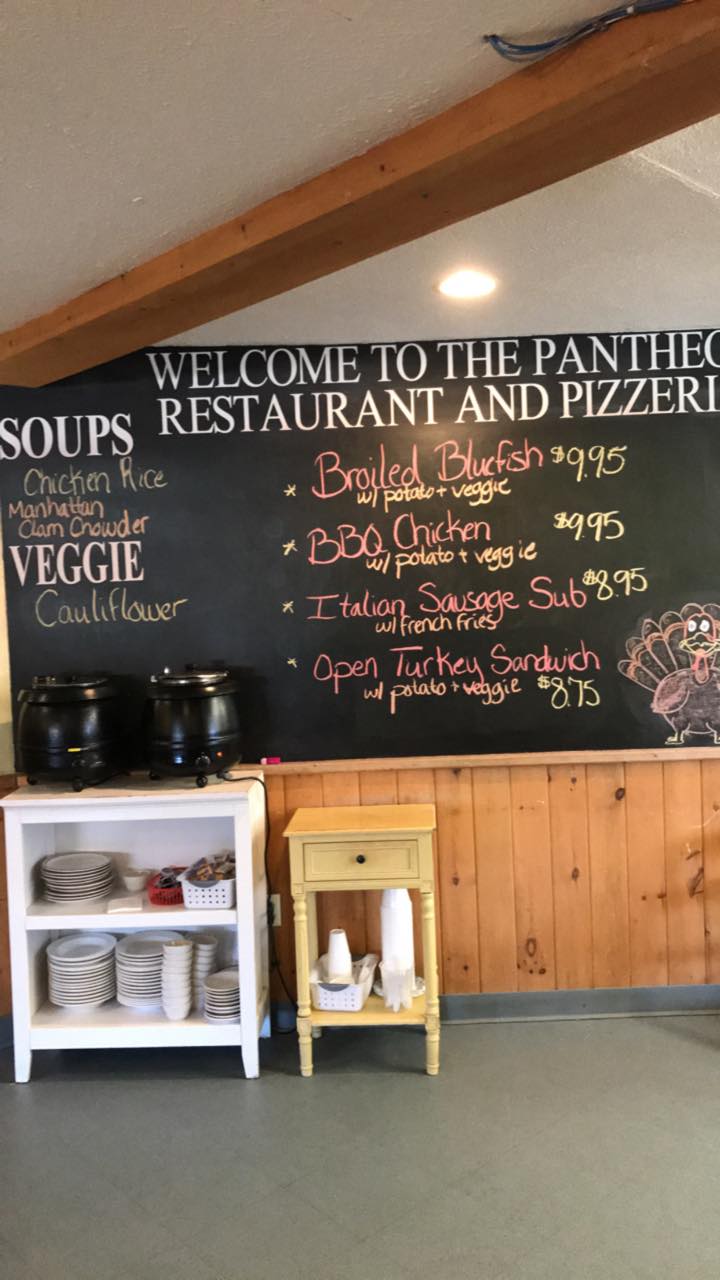 WELCOME TO THE PANTHEO
RESTAURANT AND PIZZERI
SOUPS
Chicken Rice
Manhattan
Clam Chowder
VEGGIE
Cauliflower
* Broiled Bluefish $9.95
w/ potato + veggie
* BBQ Chicken $9.95
w/ potato + veggie
* Italian Sausage Sub $8.95
w/ french fries
* Open Turkey Sandwich
w/ potato + veggie $8.75